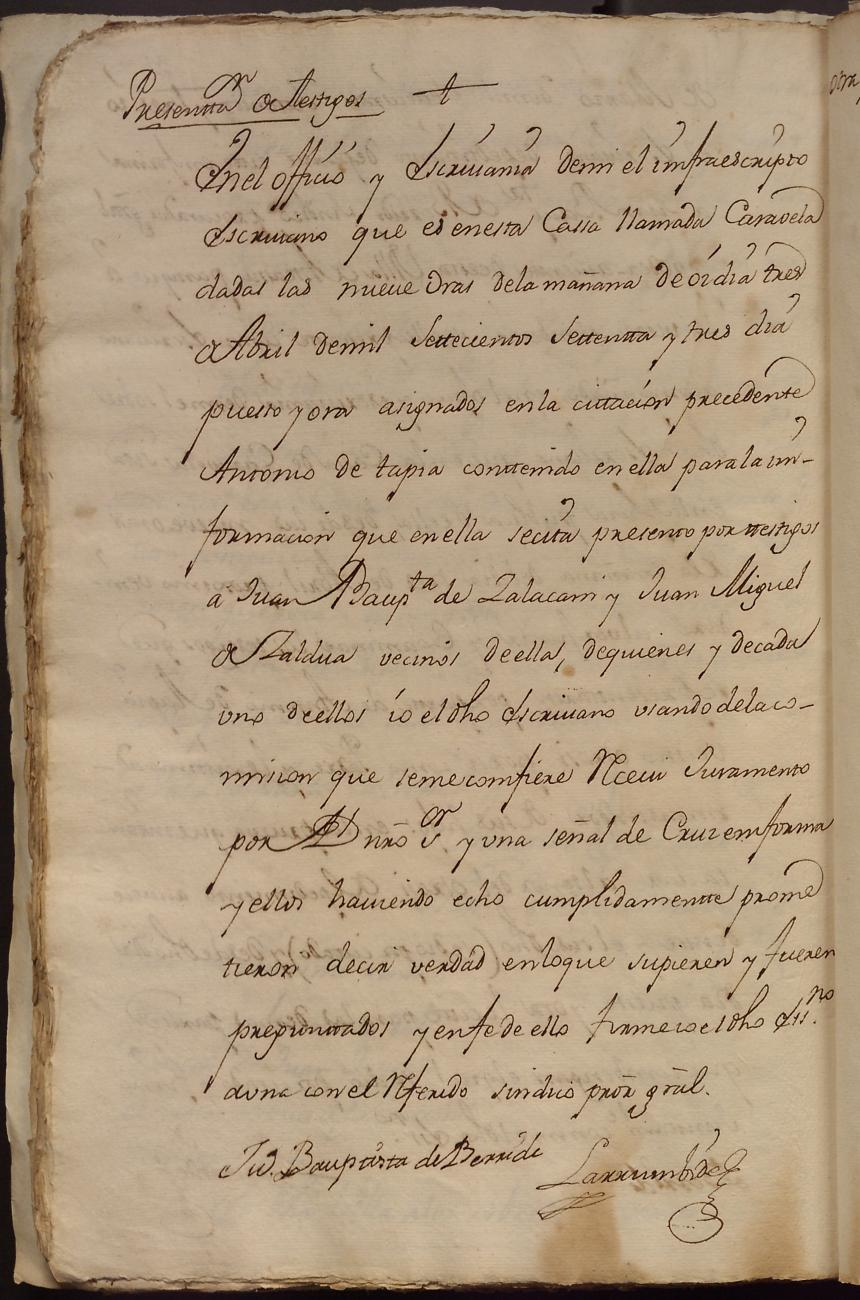 Presentta.n de testigos †
otra
En el officio y Escriuania de mi el imfraescripto
Escriuano que es en esta Cassa llamada Caravela
dadas las nueve oras de la mañana de oi dia tres
de Abril de mil Settecientos Settentta y tres dia
puesto y ora asignados en la cittacion precedente
Antonio de tapia conttenido en ella para la im-
formacion que en ella se cita presento por ttestigos
a Juan Baup.ta de Zalacain y Juan Miguel
de Zaldua vecinos de ella, de quienes y de cada
uno de ellos io el dho Escriuano usando de la co-
mision que se me comfiere Rceui Juramento
por Ds nro S.or y una señal de Cruz em forma
y ellos haviendo echo cumplidamentte prome
tieron decir verdad en lo que supieren y fueren
preguntados y en fe de ello firme io el dho Ess.no
a una con el Rferido sindico pror gral.
Ju. Bauptista de Berride
Larrumbide